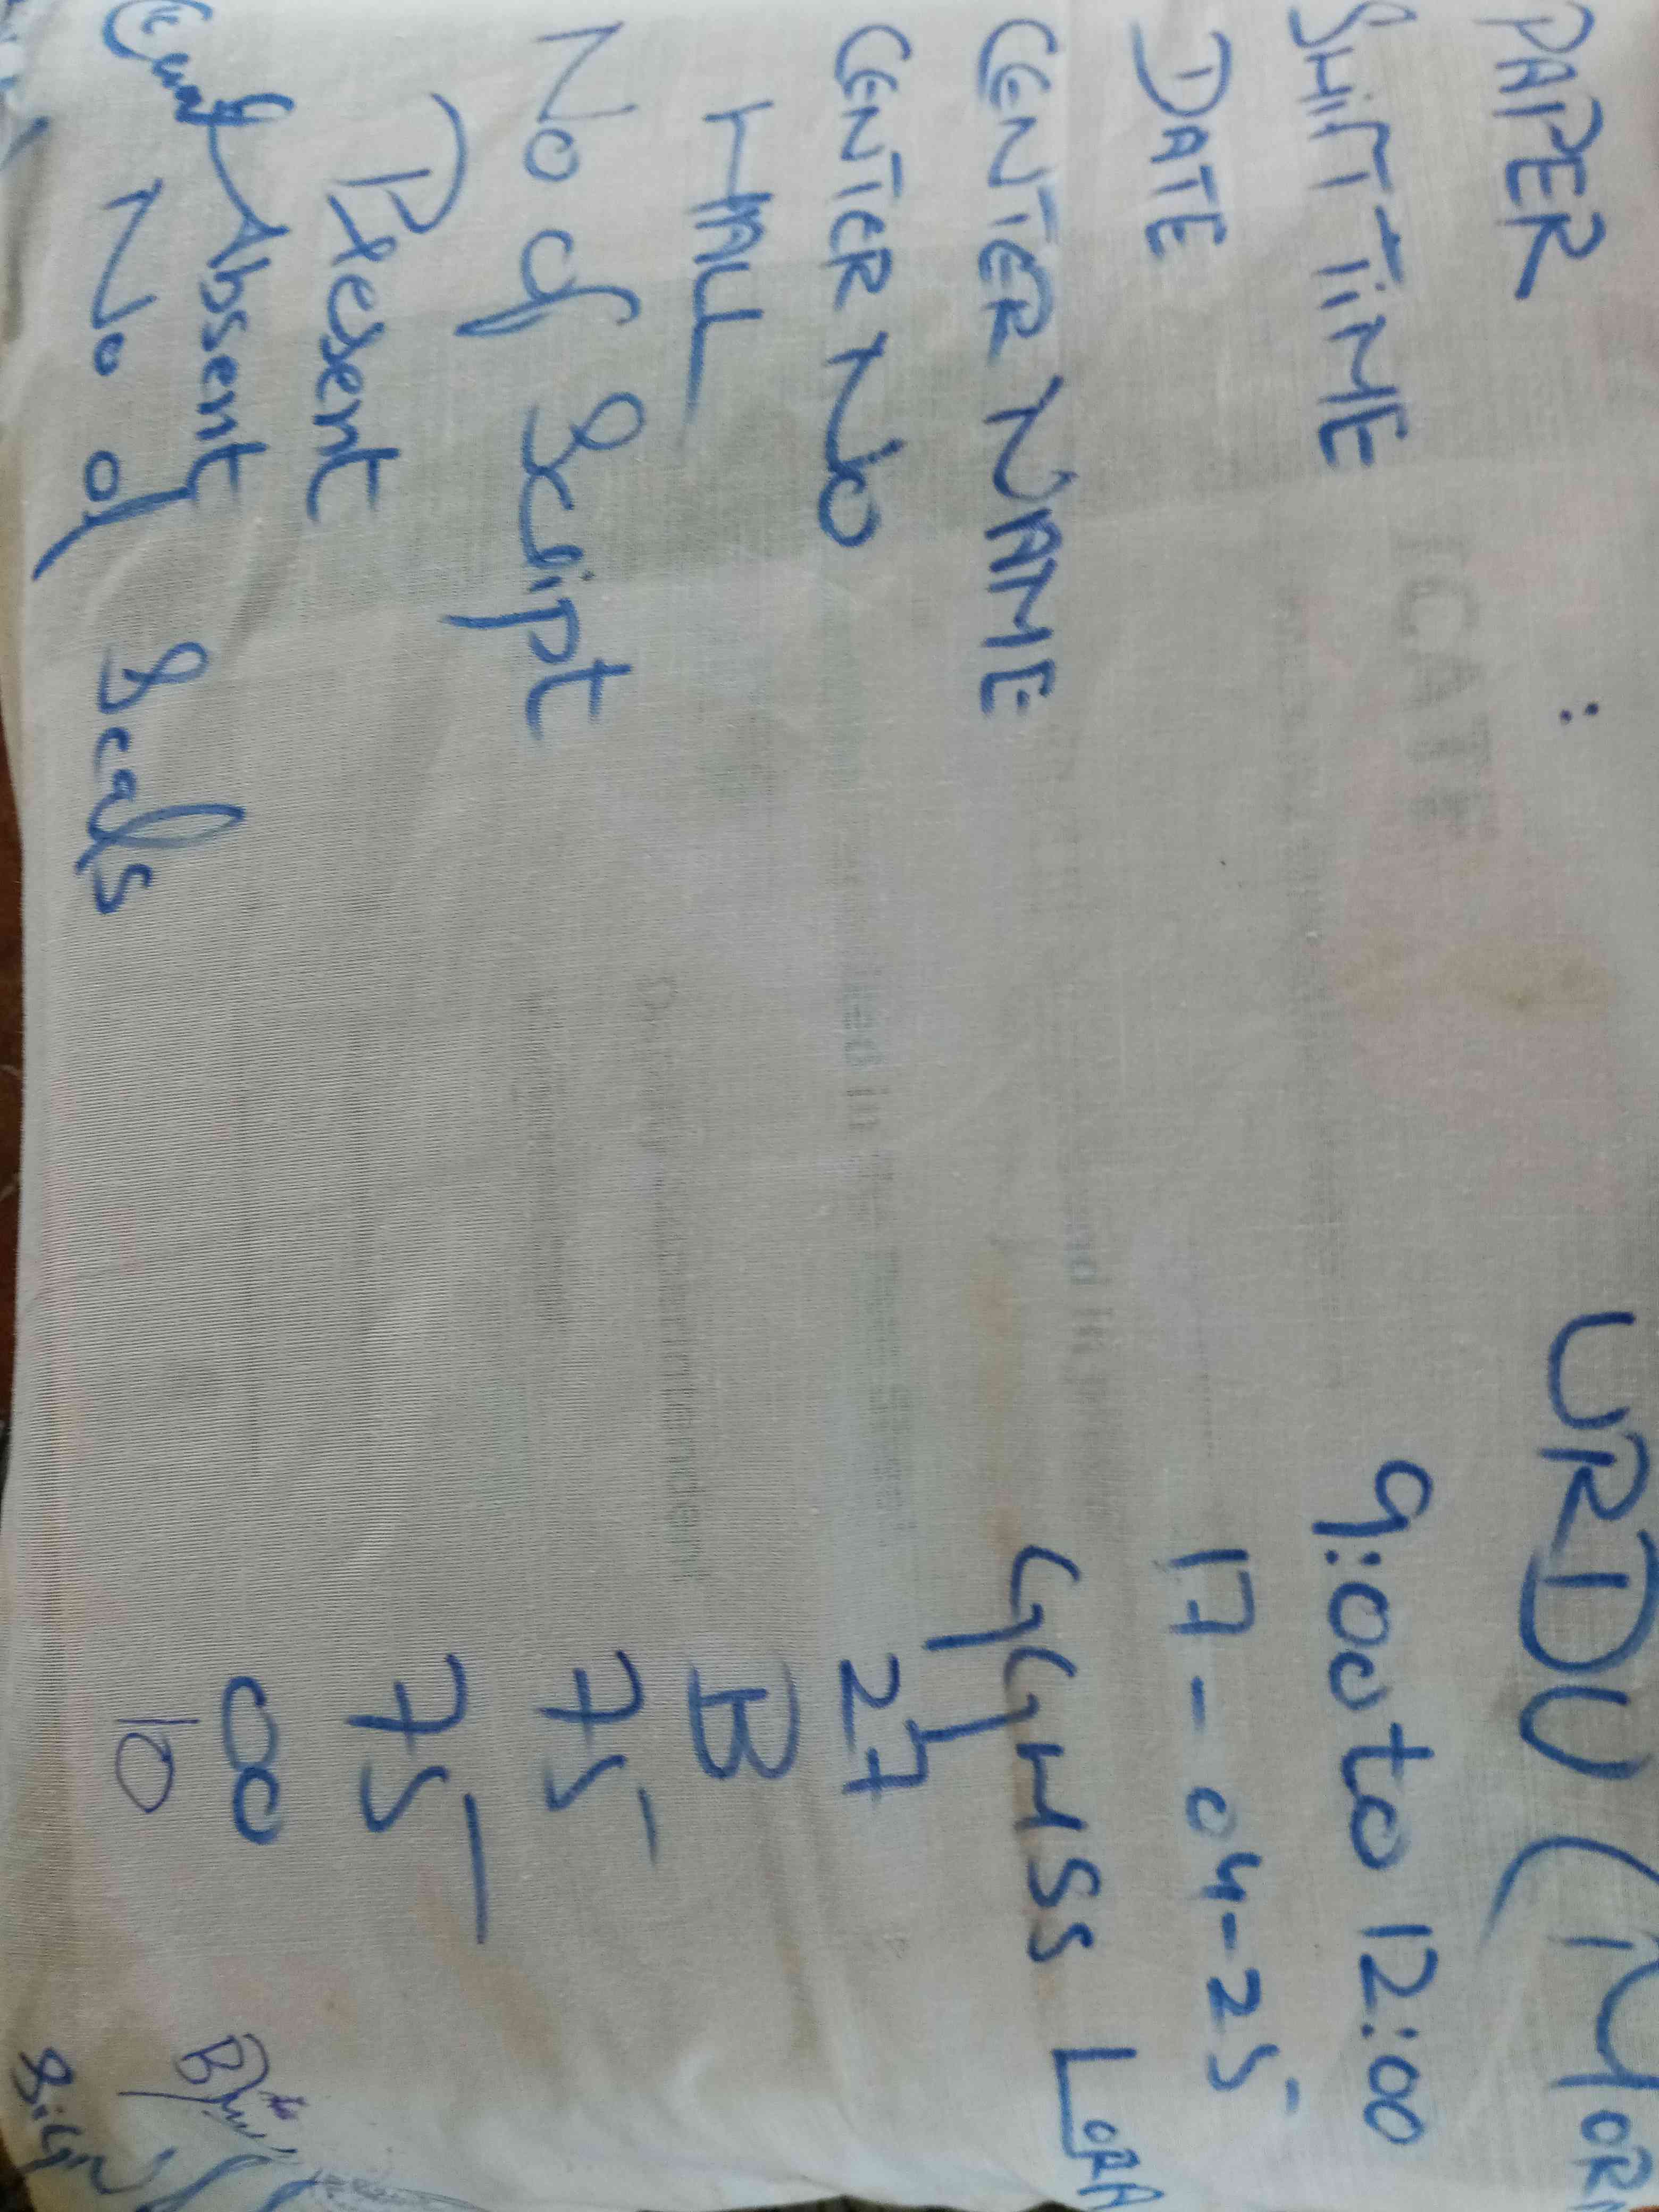 PAPER : URDU (MOR
SHIFT TIME 9:00 to 12:00
DATE 17-04-25
CENTER NAME GGHSS LORA
CENTER NO 27
HALL B
No of Script 75
Present 75
Absent 00
No of Seals 10
Sign